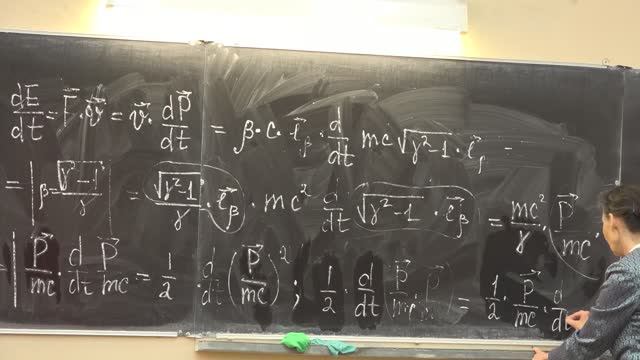 dE/dt = F⃗·v⃗ = v⃗·dP⃗/dt = β·c·e⃗_β·d/dt mc√(γ²-1)·e⃗_β =
= |β=√(γ²-1)/γ| = √(γ²-1)/γ·e⃗_β·mc² d/dt √(γ²-1)·e⃗_β = mc²/γ·P⃗/mc·
= |P⃗/mc·d/dt P⃗/mc = 1/2·d/dt(P⃗/mc)²; 1/2·d/dt = 1/2·P⃗/mc·d/dt